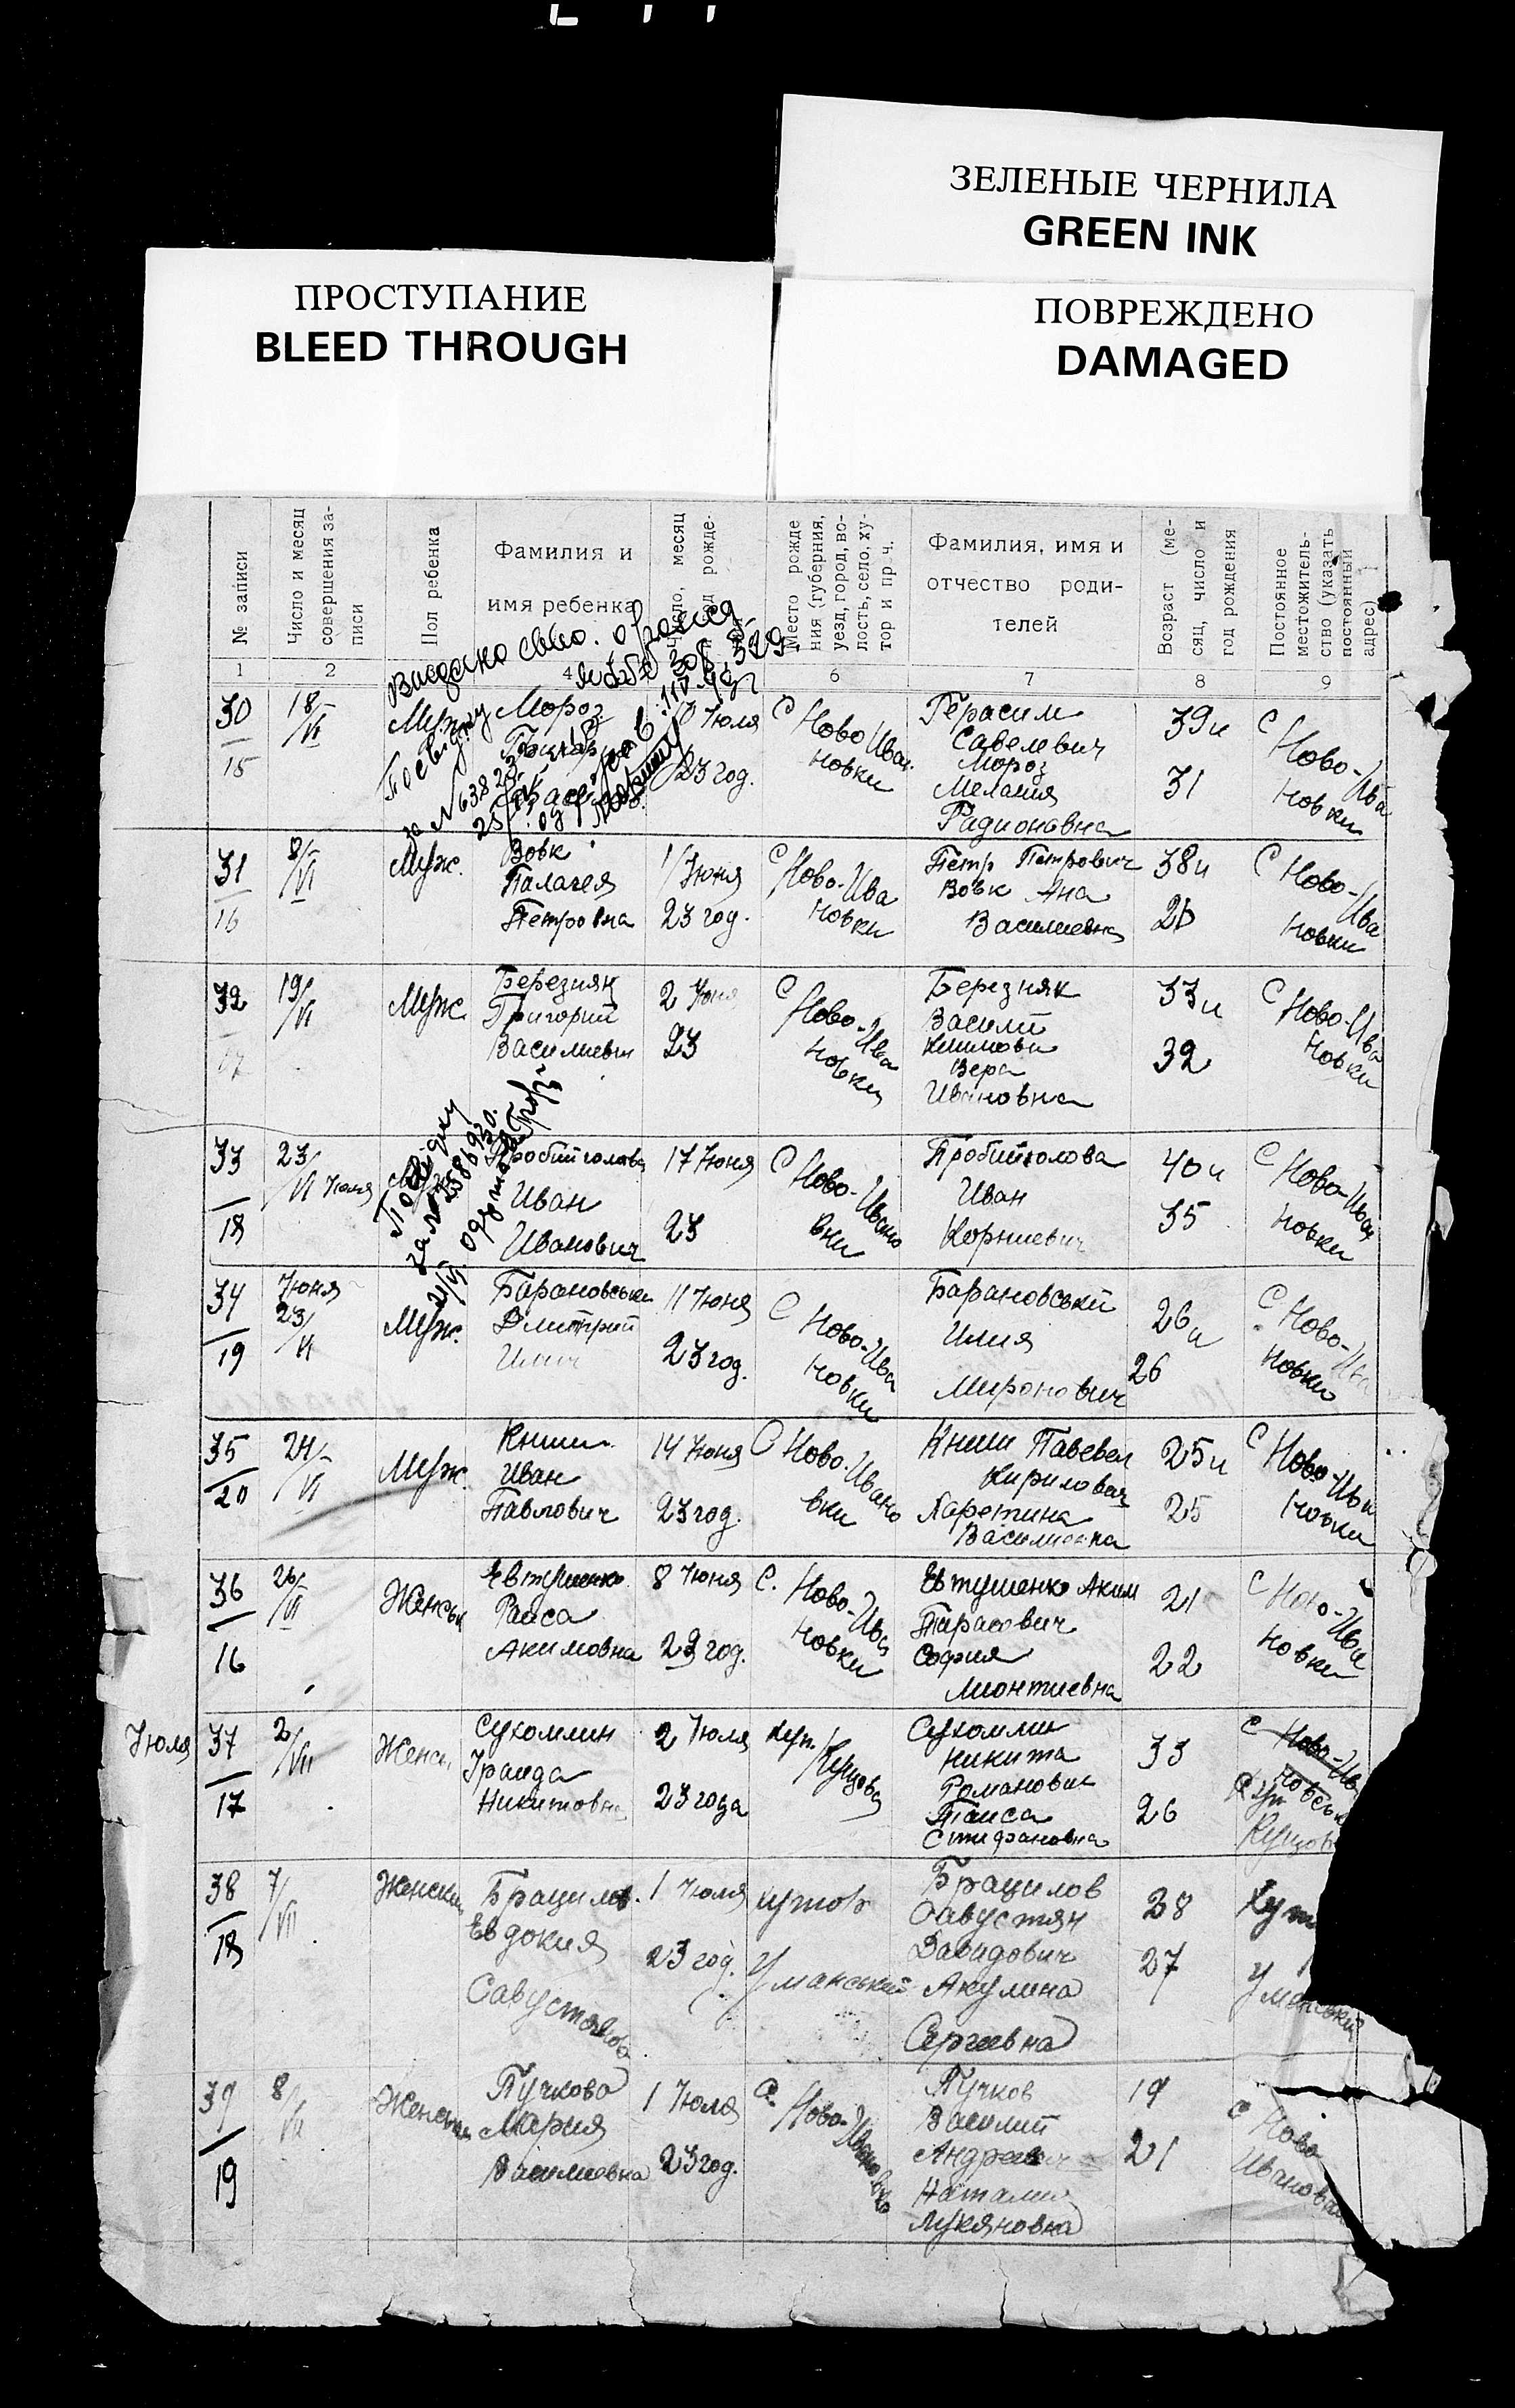 ЗЕЛЕНЫЕ ЧЕРНИЛА
GREEN INK
ПРОСТУПАНИЕ
BLEED THROUGH
ПОВРЕЖДЕНО
DAMAGED
№ записи
Число и месяц
совершения за-
писи
Пол ребенка
Фамилия и
имя ребенка
месяц
рожде-
Место рожде
ния (губерния,
уезд, город, во-
лость, село, ху-
тор и пр ч.
Фамилия, имя и
отчество роди-
телей
Возраст (ме-
сяц, число и
год рождения
Постоянное
местожитель-
ство (указать
постоянный
адрес)
1 2 4 6 7 8 9
30
15
18/VI
Муж
Мороз
Июля
23 год.
С Ново Иван
новки
Герасим
Савелевич
Мороз
Мелания
Радионовна
39 и
31
С Ново-Ива
новки
31
16
8/VI
Муж.
Вовк
Палагея
Петровна
1/Июня
23 год.
С Ново-Ива
новки
Петр Петрович
Вовк Ана
Василиевна
38 и
С Ново-Ива
новки
32
17
19/VI
Муж.
Березняк
Григорий
Василиевич
2 Июня
23
С Ново-Ива
новки
Березняк
Василий
Вера
Ивановна
33 и
32
С Ново-Ива
новки
33
18
23/VI Июня
Пробийголова
Иван
Иванович
17 Июня
23
С Ново-Ивано
вки
Пробийголова
Иван
Корниевич
40 и
35
С Ново-Иван
новки
34
19
Июня
23/VI
Муж.
Барановськи
Дмитрий
Илич
11 Июня
23 год.
С Ново-Ива
новки
Барановський
Илия
Миронович
26 и
26
С Ново-Ива
новки
35
20
24/VI
Муж.
Книш
Иван
Павлович
14 Июня
23 год.
С Ново-Ивано
вки
Книш Павевел
Кирилович
Харетина
Василиевна
25 и
25
С Ново-Ива
новки
36
16
26/VI
Женськ
Евтушенко
Раиса
Акимовна
8 Июня
23 год.
С. Ново-Ива
новки
Евтушенко Аким
Тарасович
София
Лионтиевна
21
22
С Ново-Ива
новки
Июля
37
17
2/VII
Женс.
Сухомлин
Ираида
Никитовна
2 Июля
23 года
Сухомлин
Никита
Романович
Таиса
Стифановна
33
26
С Ново-Ив
38
18
7/VII
Женски
Брацилов.
Евдокия
Савустянова
1 Июля
23 год.
хутор
Уманський
Брацилов
Савустян
Давидович
Акулина
Сергеевна
28
27
Хут
Уманський
39
19
8/VII
Женськи
Пучкова
Мария
Василиевна
1 Июля
23 год.
С. Ново-Ивановка
Пучков
Василий
Андреевич
Наталия
Лукяновна
19
21
С Ново
Ивановка